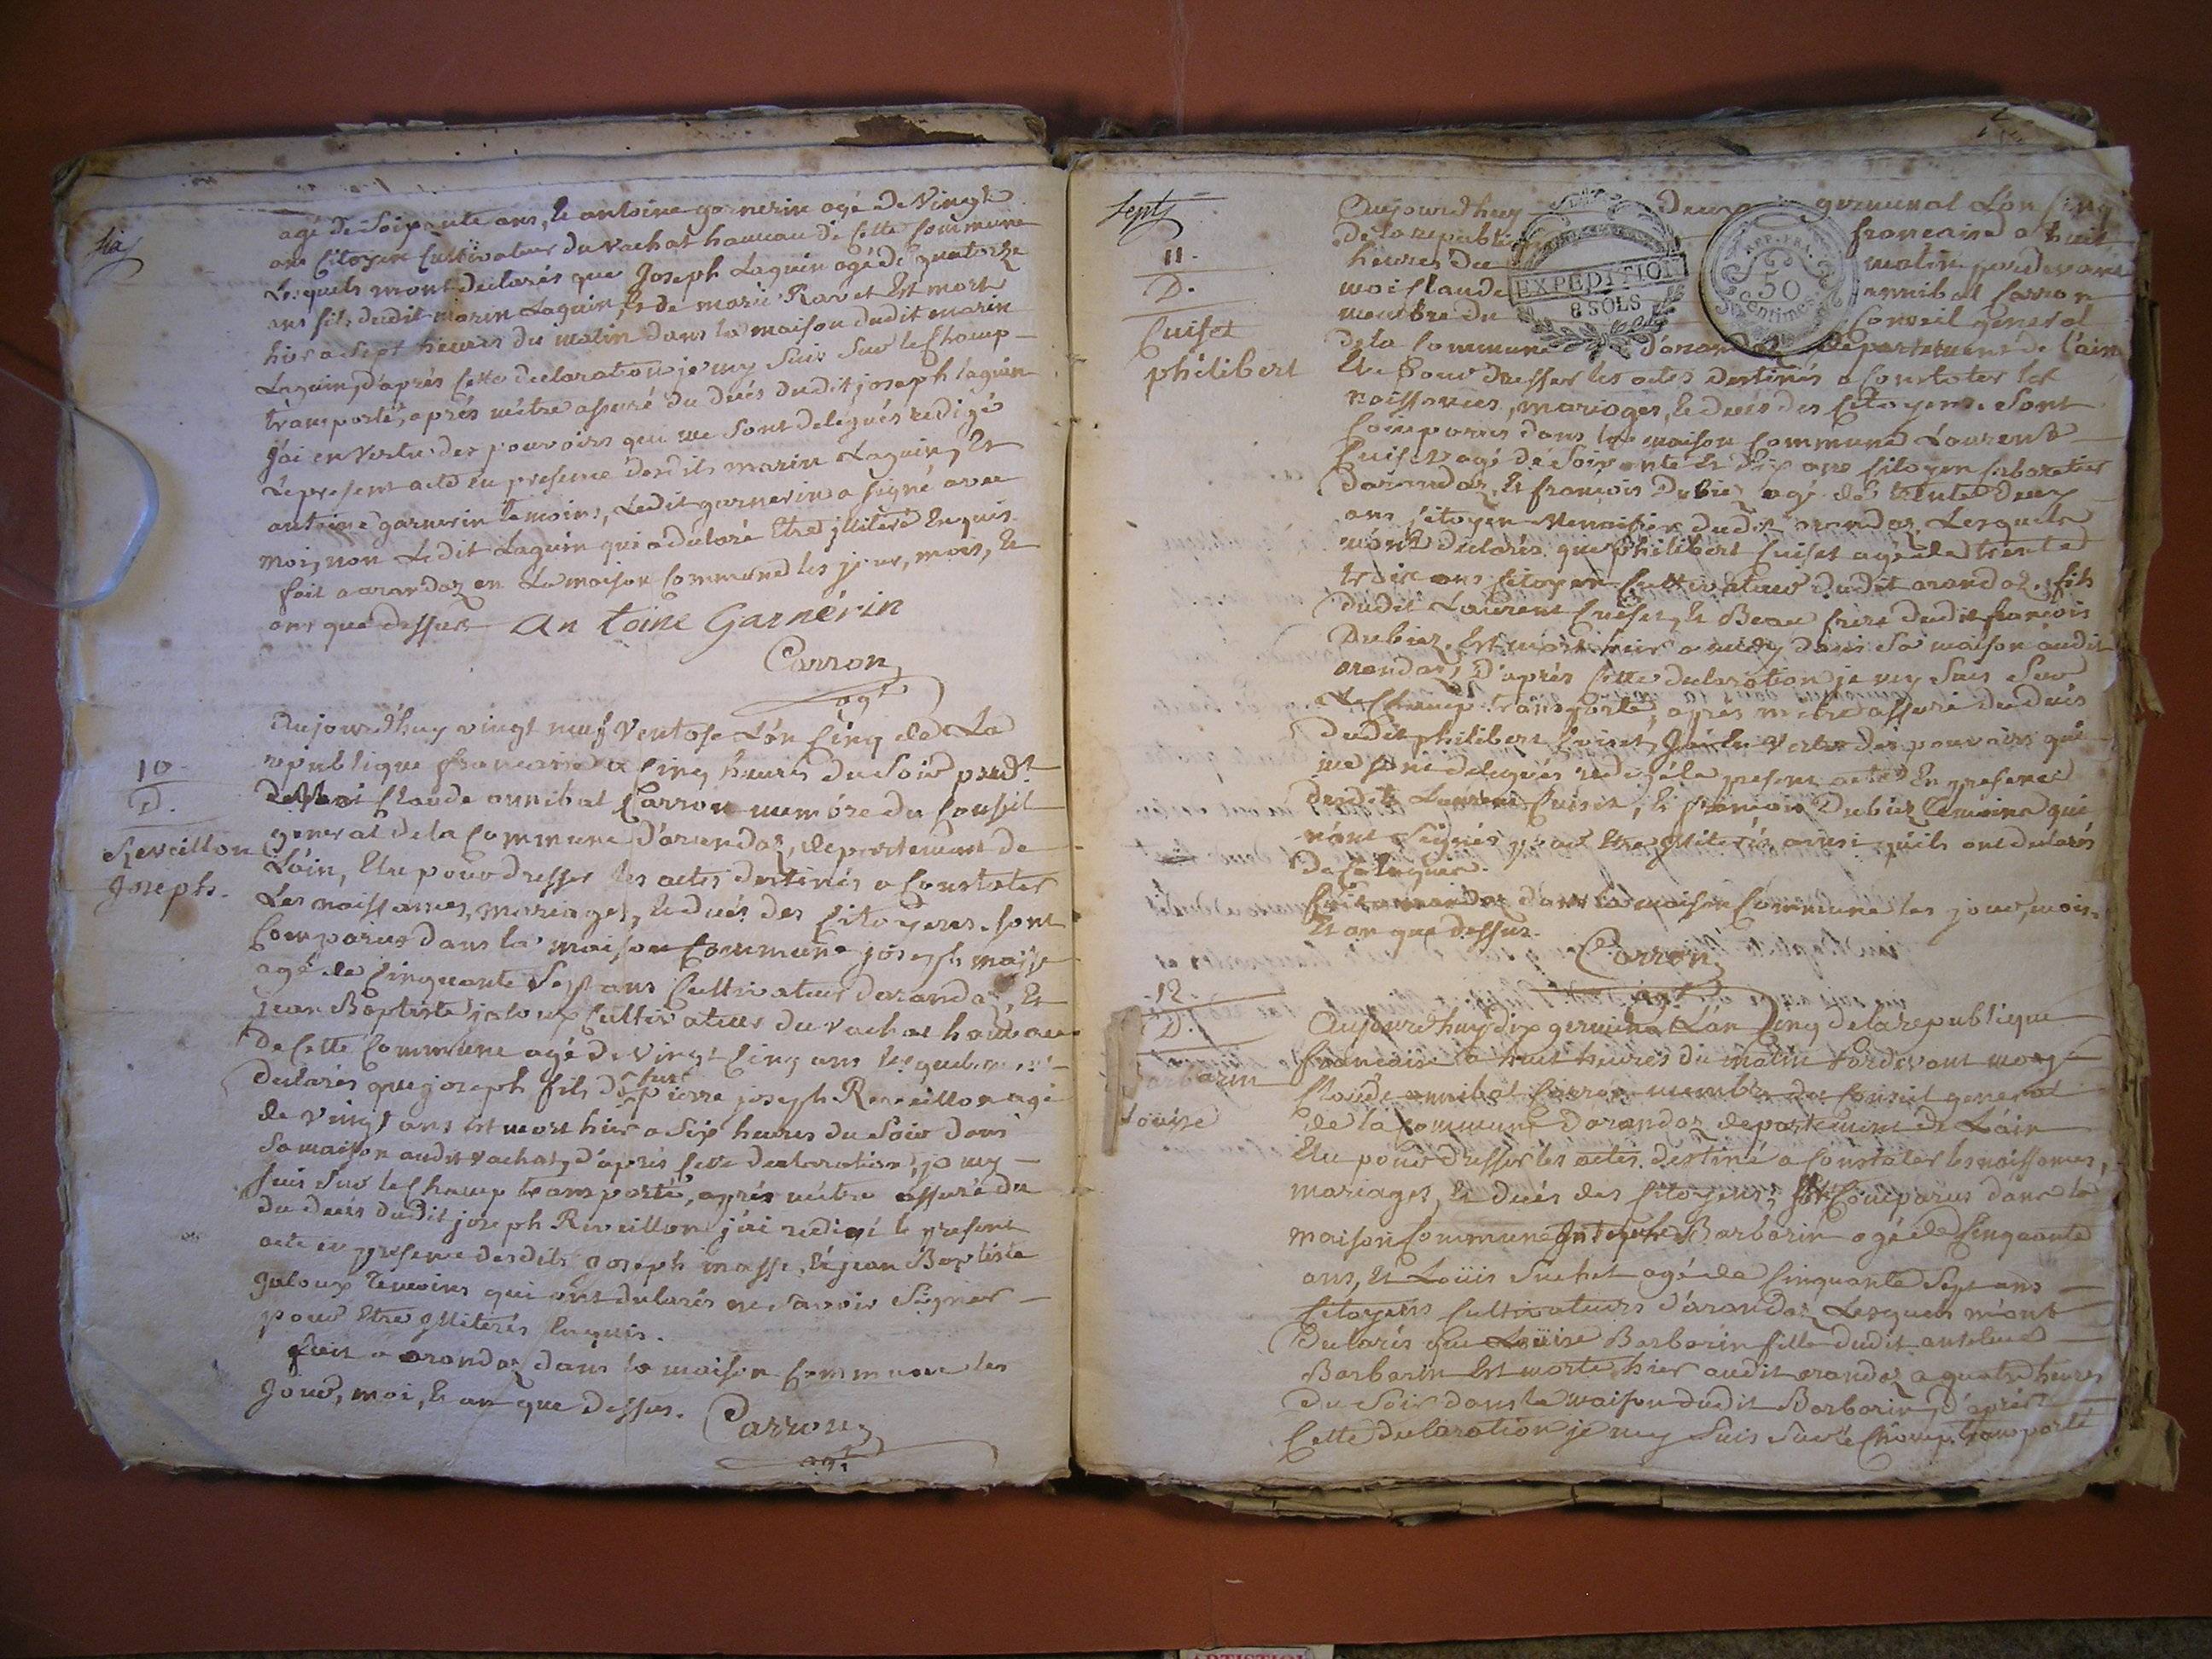 six
agé de Soixante ans, & antoine garnerin agé de Vingt
ans Citoyen Cultivateur du vachat hameau de cette Commune
Lesquels m'ont declarés que Joseph Laguin agé de quatorze
ans fils dudit marin Laguin, & de marie Ravet Est mort
hier a sept heures du matin dans la maison dudit marin
Laguin, d'aprés cette declaration je my suis sur le Champ
transporté, aprés m'être assuré du decés dudit joseph laguin
j'ai en vertu des pouvoirs qui me sont delegués redigé
Le present acte en presence desdits marin Laguin, Et
antoine garnerin temoins, Ledit garnerin a signé avec
moi, non Ledit Laguin qui a declaré Etre jlliteré Enquis
fait a arandaz en La maison Commune les jour, mois, &
ans que dessus
An toine Garnérin
Carron
agt
10
D.
Reveillon
Joseph.
Aujourd'huy vingt neuf Ventose L'an Cinq de La
republique francaise a Cinq heures du Soir pard.t
devant moi Claude annibal Carron membre du Conseil
general de la Commune d'arandaz, departement de
L'ain, Elu pour dresser les actes destinés a Constater
Les naissances, mariages, & decés des Citoyens. sont
Comparus dans la maison Commune joseph masse
agé de Cinquante Sept ans Cultivateur d'arandaz, Et
jean Baptiste jaloux Cultivateur du vachat hameau
de Cette Commune agé de Vingt Cinq ans lesquels m'ont
declarés que joseph fils de feu pierre joseph Reveillon agé
de vingt ans est mort hier a Six heures du Soir dans
Sa maison audit vachat, d'aprés cette declaration, je my
suis Sur le Champ transporté, aprés m'être assuré du
du decés dudit joseph Reveillon j'ai redigé le present
acte en presence desdits joseph masse, & jean Baptiste
jaloux temoins qui ont declarés ne Savoir Signer
pour Etre jlliterés Enquis.
fait a arandaz dans la maison Commune les
Jour, moi, & an que dessus.
Carron
agt
Sept
11.
D.
Cuiset
philibert
Aujourdhuy Deux germinal L'an Cinq
de la republique francaise a huit
heures du matin pardevant
moi Claude annibal Carron
membre du Conseil general
EXPEDITION
8 SOLS
REP. FRA.
50
Centimes
de la Commune d'arandaz departement de l'ain
Elu pour dresser les actes destinés a Constater les
naissances, mariages, & decés des Citoyens. Sont
Comparus dans la maison Commune Laurent
Cuiset agé de Soixante & dix ans Citoyen Cabaretier
darandaz, & francois Dubiez agé de trente deux
ans citoyen Menuisier dudit arandaz Lesquels
m'ont declarés que philibert Cuiset agé de trente
trois ans Citoyen Cultivateur dudit arandaz, fils
dudit Laurent Cuiset, & Beau frere dudit francois
Dubiez. Est mort hier a midy dans Sa maison audit
arandaz, D'aprés Cette declaration je my Suis Sur
Le Champ transporté, aprés m'etre assuré du decés
dudit philibert Cuiset, J'ai En vertu des pouvoirs qui
me sont delegués redigé le present acte En presence
desdits Laurent Cuiset, & francois Dubiez temoins qui
n'ont Signés pour Etre jlliterés ainsi qu'ils ont declarés
De Ce Enquis.
fait a arandaz dans la maison Commune les jour, mois,
Et an que dessus.
Carron
agt
12
D.
Barbarin
Louise
Aujourdhuy dix germinal L'an Cinq de la republique
francaise a huit heures du matin Pardevant moy
Claude annibal Carron membre du Conseil general
de la Commune d'arandaz departement de L'ain
Elu pour dresser les actes destiné a Constater les naissances,
mariages, & decés des Citoyens; sont Comparus dans la
maison Commune Barbarin agé de Cinquante
ans, & Loüis Suchet agé de Cinquante Sept ans
Citoyens Cultivateurs d'arandaz Lesquels m'ont
declarés que Loüise Barbarin fille dudit antelme
Barbarin Est morte hier audit arandaz a quatre heures
du Soir dans la maison dudit Barbarin, d'aprés
Cette declaration je my Suis Sur le Champ transporté